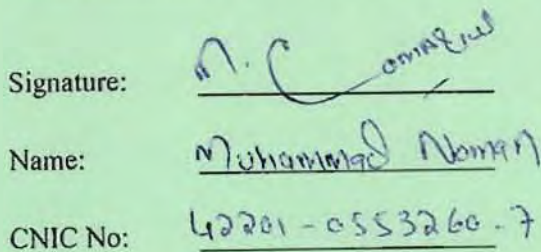 Signature: M.
Name: Muhammad Noman
CNIC No: 42201-0553260-7